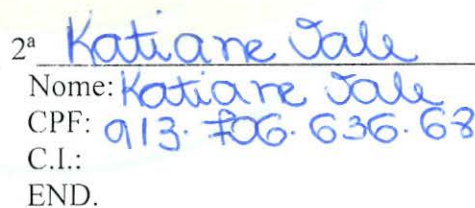 2ª Katiane Vale
Nome: Katiane Vale
CPF: 913.706.636.68
C.I.:
END.